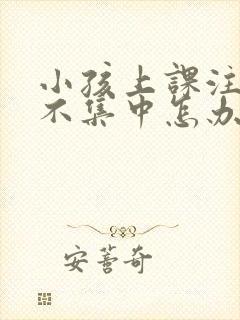 小孩上課注
不集中怎办
安蓍奇